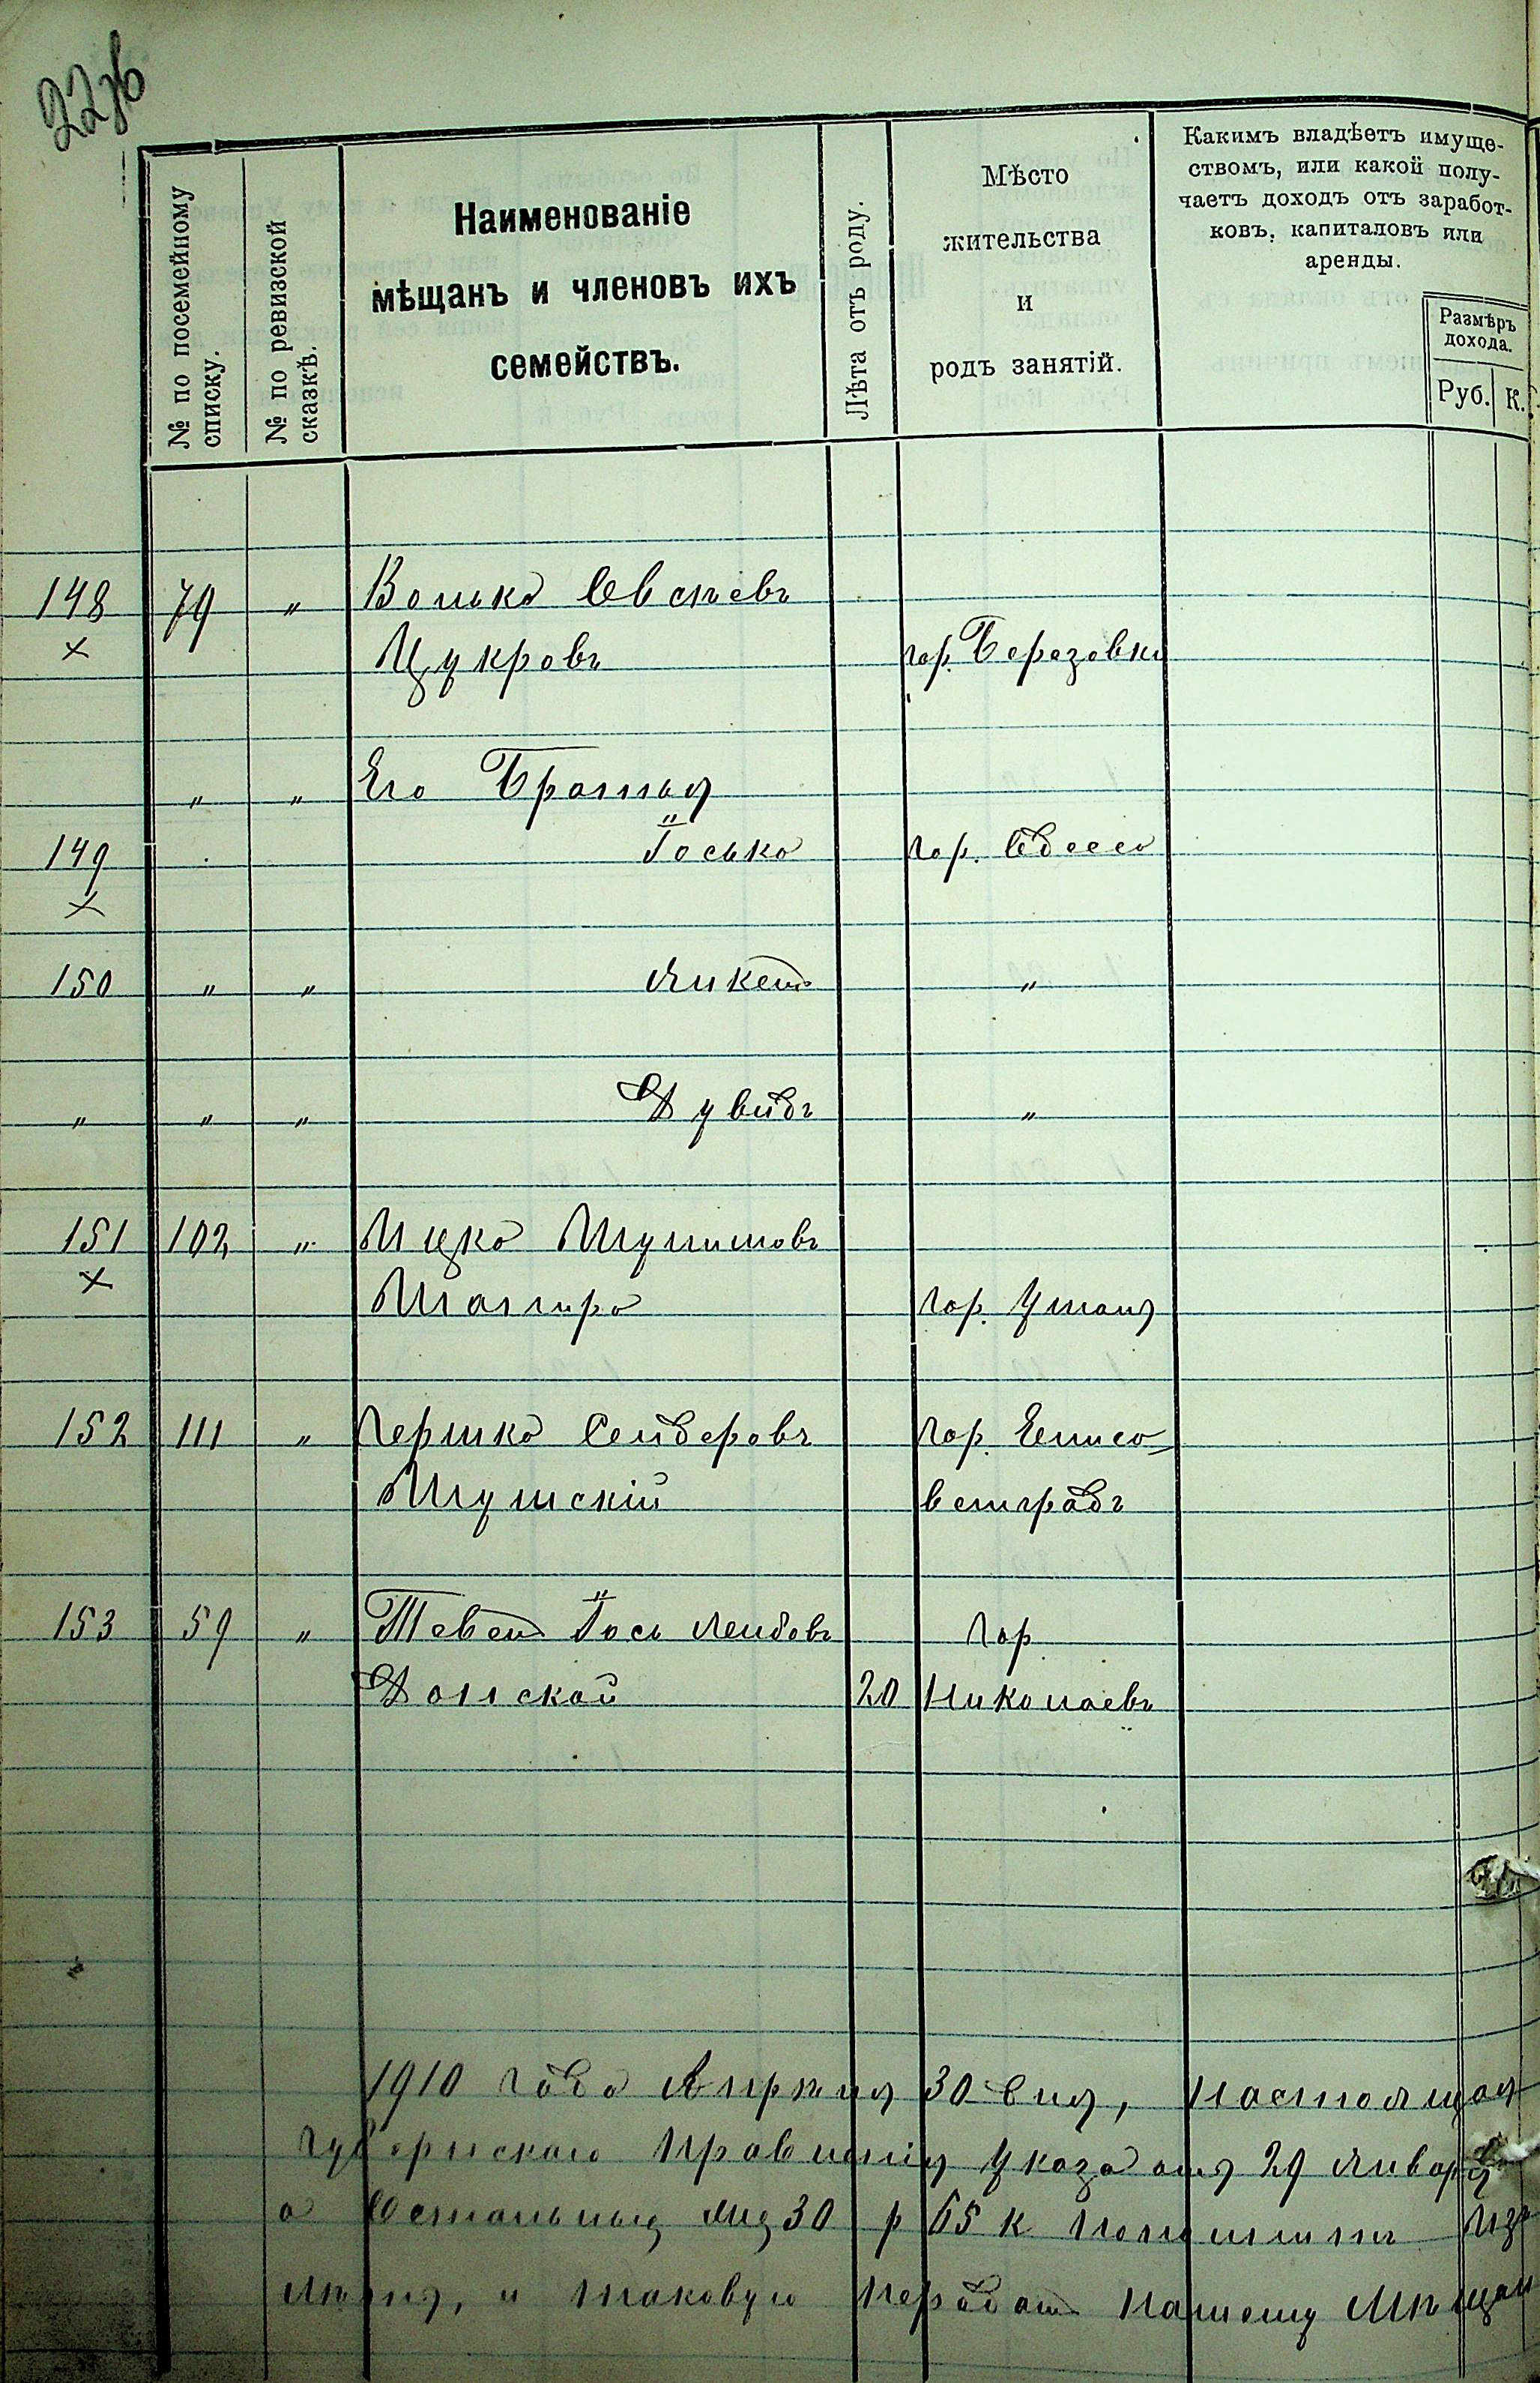 22об
№ по посемейному списку.
№ по ревизской сказкѣ.
Наименованіе
мѣщанъ и членовъ ихъ
семействъ.
Лѣта отъ роду.
Мѣсто
жительства
и
родъ занятій.
Какимъ владѣетъ имуще-
ствомъ, или какой полу-
чаетъ доходъ отъ заработ-
ковъ, капиталовъ или
аренды.
Размѣръ
дохода.
Руб. К.
148 79 " Волько Овсѣевъ
× Цукровъ гор. Березовка
" " Его Братья
149 Іосько гор. Одесса
×
150 " " Янкель "
" " " Дувидъ "
151 102 " Ицко Шулимовъ
× Шапиро гор. Умань
152 111 " Гершко Сендеровъ гор. Елисо-
Шушскій ветградъ
153 59 " Тевель Іось Лейбовъ гор
Донской 20 Николаевъ
1910 года Апрѣля 30 дня, настоящая
Губернскаго Правленія Указа отъ 29 Января
а остальныя 30 р 65 к
и таковую передать нашему Мѣщан